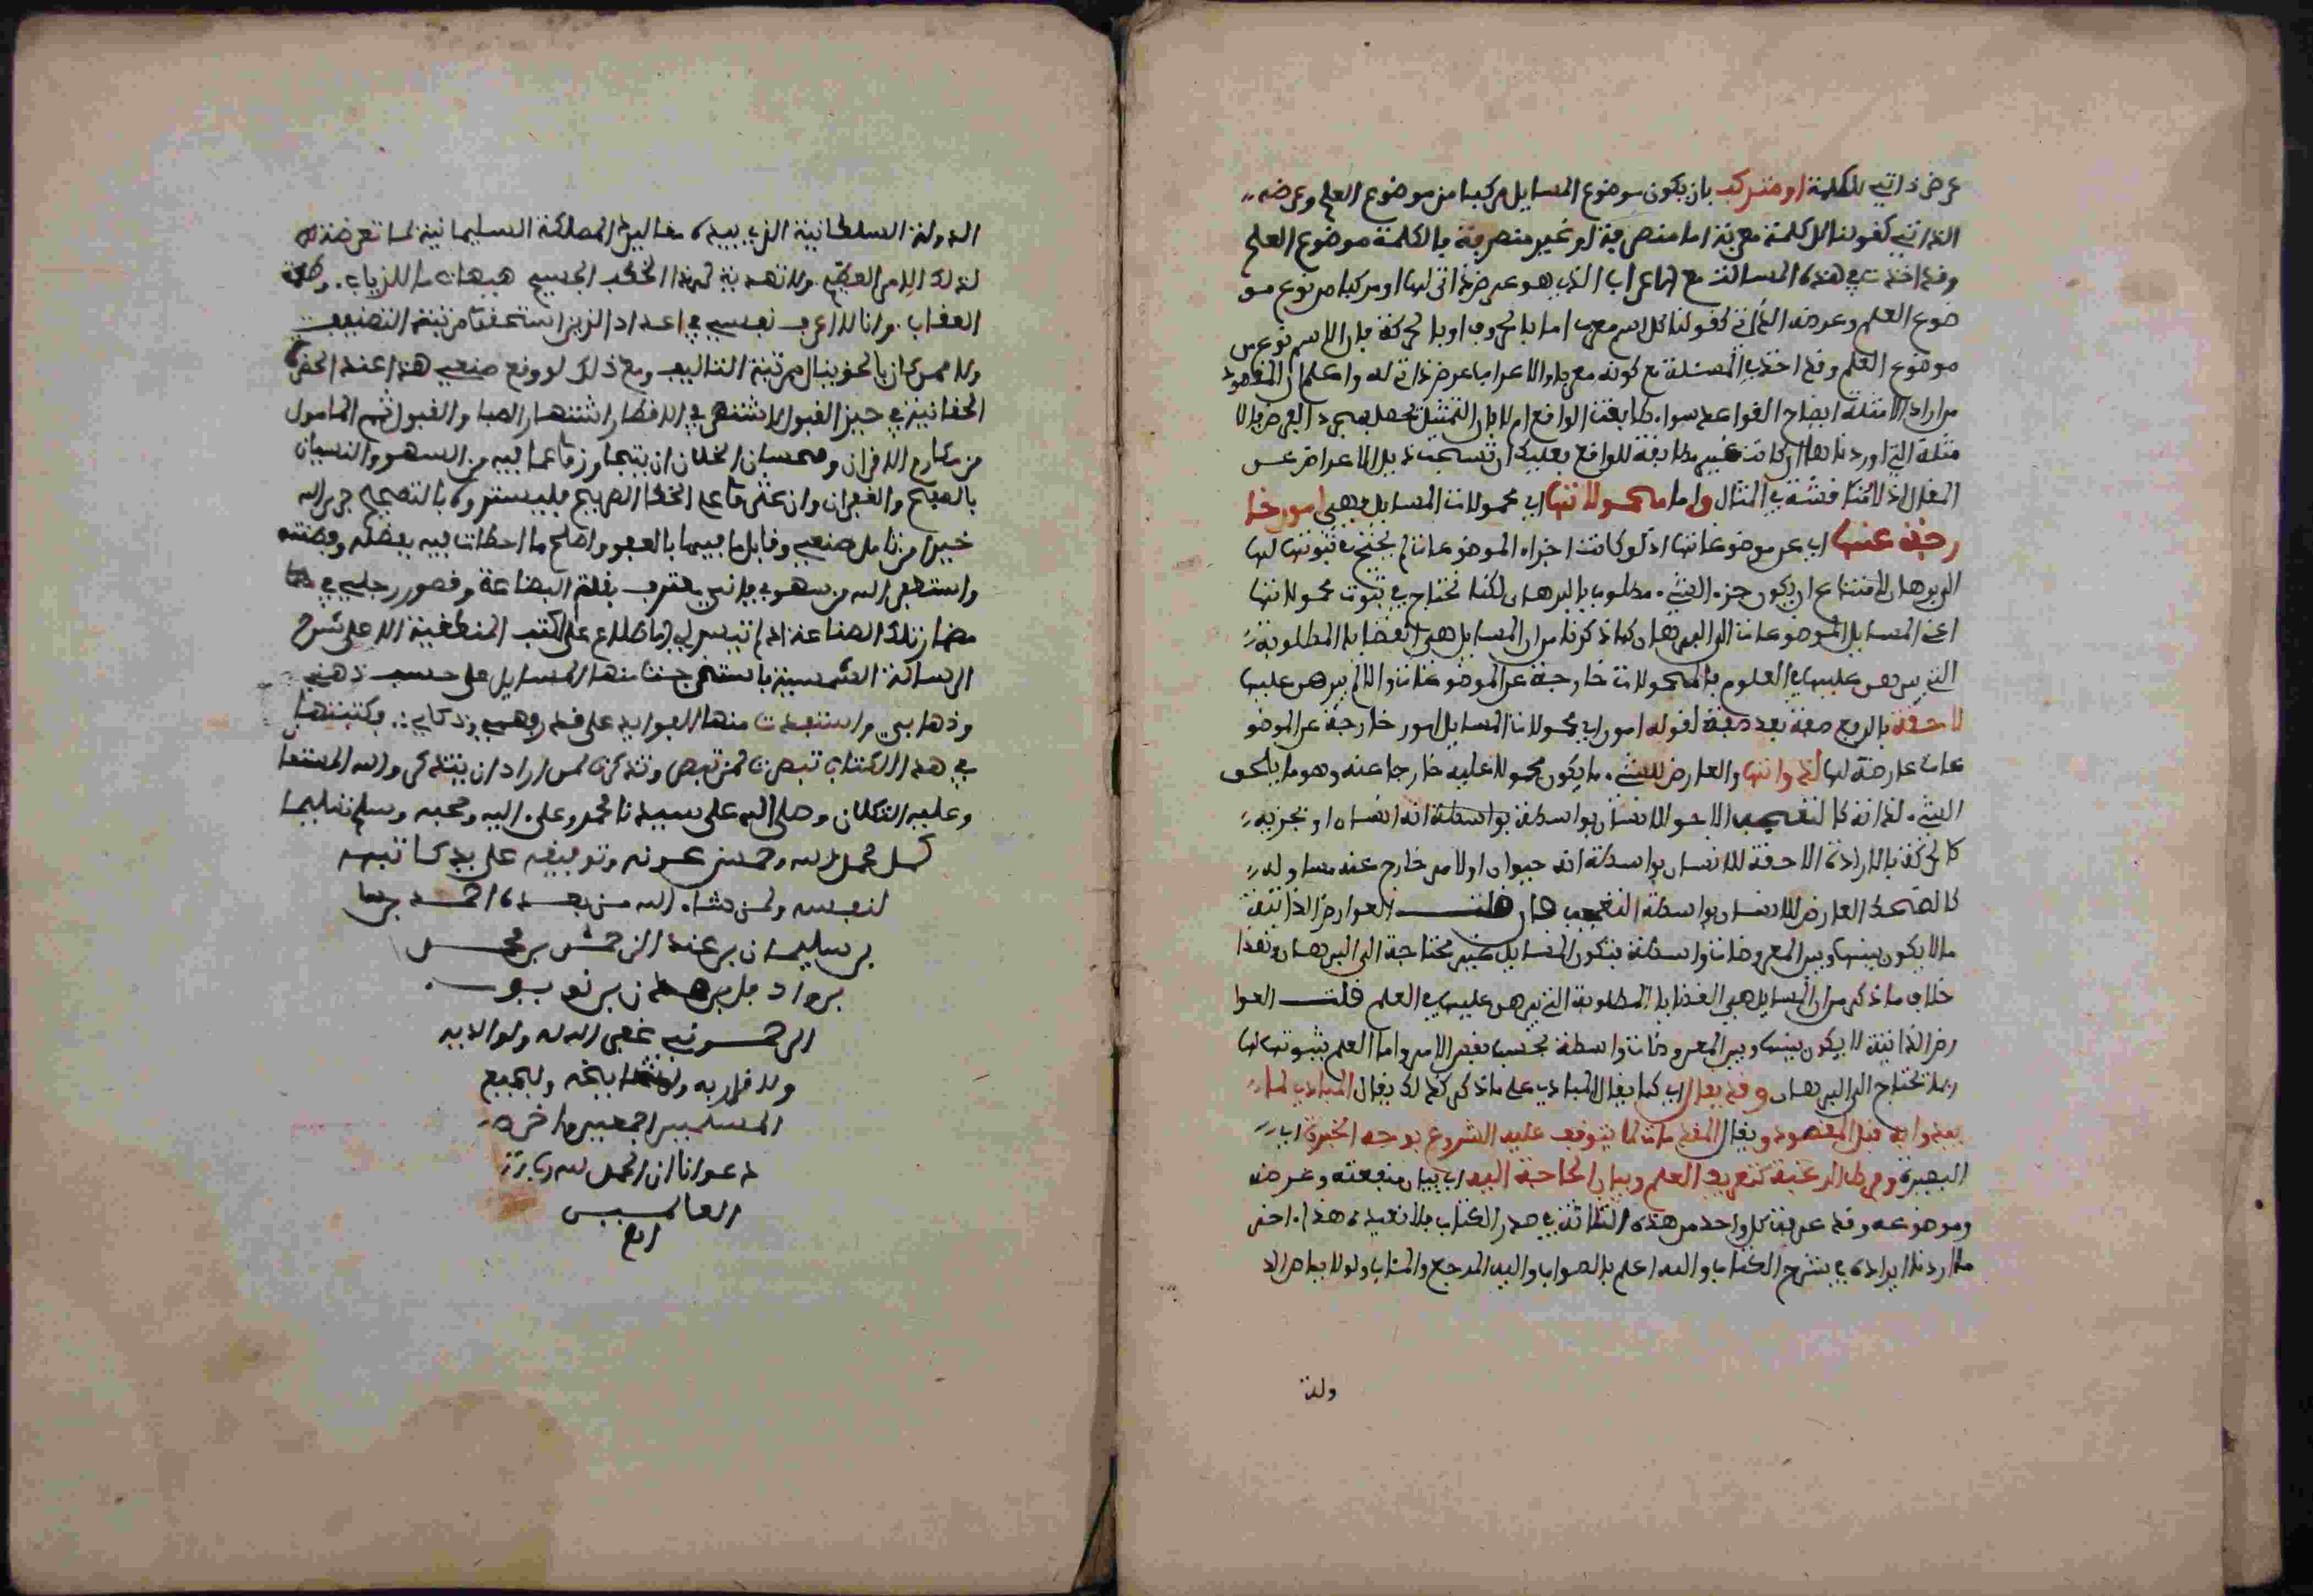 عرض ذاتي للكلمة او متركب بان يكون موضوع المسايل مركبا من موضوع العلم وعرضه
الذاتي كقولنا كل كلمة معربة اما منصرفة او غير منصرفة فالكلمة موضوع العلم
وقد اخذت في هذه المسالة مع الاعراب الذي هو عرض ذاتي لها او مركبا من نوع مو
ضوع العلم وعرضه الذاتي كقولنا كل اسم معرب اما بالحروف او بالحركة فان الاسم نوع من
موضوع العلم وقد اخذ في المسئلة مع كونه معربا والاعراب عرض ذاتي له واعلم ان المقصود
من ايراد الامثلة ايضاح القواعد سواء طابقت الواقع ام لا فان التمثيل يحصل بمجرد الفرض فالا
مثلة التي اوردناها ان كانت غير مطابقة للواقع فعليك ان تسحب ذيل الاعراض عن
المقال اذ لا مناقشة في المثال واما محمولاتها اي محمولات المسايل فهي امور خا
رجة عنها اي عن موضوعاتها اذ لو كانت اجزاء الموضوعات لم يحتج في ثبوتها لها
الى برهان لامتناع ان يكون جزء الشيء مطلوبا بالبرهان لكنا نحتاج في ثبوت محمولاتها
اعني المسايل لموضوعات الى البرهان كما ذكرنا من ان المسايل هي القضايا المطلوبة
التي يبرهن عليها في العلوم فالمحمولات خارجة عن الموضوعات والا لم يبرهن عليها
لاحقة بالرفع صفة بعد صفة لقوله امور اي محمولات المسايل امور خارجة عن الموضو
عات عارضة لها لذواتها والعارض للشيء ما يكون محمولا عليه خارجا عنه وهو ما يلحق
الشيء لذاته كالتعجب اللاحق للانسان بواسطة بواسطة انه انسان او لجزيه
كالحركة بالارادة اللاحقة للانسان بواسطة انه حيوان او لامر خارج عنه مساو له
كالضحك العارض للانسان بواسطة التعجب فان قلت العوارض الذاتية
ما لا يكون بينها وبين المعروضات واسطة فتكون المسايل غير محتاجة الى البرهان وهذا
خلاف ما ذكر من ان المسايل هي القضايا المطلوبة التي يبرهن عليها في العلم قلت العوا
رض الذاتية لا يكون بينها وبين المعروضات واسطة بحسب نفس الامر واما العلم بثبوتها لها
ربما تحتاج الى البرهان وقد يقال اي كما يقال المبادي على ما ذكر كذلك يقال المبادي لما
يبدء به قبل المقصود ويقال المقدمات لما يتوقف عليه الشروع بوجه الخبرة اي
البصيرة وفرط الرغبة كتعريف العلم وبيان الحاجة اليه اي بيان منفعته وغرضه
وموضوعه وقد عرفت كل واحد من هذه الثلاثة في صدر الكتاب فلا نعيده هذا اخر
ما اردنا ايراده في شرح الكتاب والله اعلم بالصواب واليه المرجع والمئاب ولولا
ولة
الدولة السلطانية الذي بيده مقاليد المملكة السليمانية لما تعرضت
لذلك الامر العظيم ولا تهديت لهذا الخطب الجسيم هيهات ما للذباب وطعمة
العقاب وانا لا اعرف نفسي في اعداد الذين استحقوا مرتبة التصنيف
ولا ممن كان بالحق ينال مرتبة التاليف ومع ذلك لو وقع صنعي هذا عند الحضرة
الخاقانية في حيز القبول لاشتهر في الاقطار اشتهار الصبا والقبول ثم المامول
من مكارم الاقران ومحسبان الخلان ان يتجاوزوا عما فيه من السهو والنسيان
بالصفح والغفران وان عثروا على الخطا الصريح فليستروه بالتصحيح جزى الله
خيرا من تامل صنعي وقابل ما فيها بالعفو واصلح ما اخطات فيه بفضله وفطنته
واستغفر الله من سهوي فاني معترف بقلة البضاعة وقصور رجلي في
مضمار تلك الصناعة اذ لم تتيسر لي الاطلاع على الكتب المنطقية الا على شرح
الرسالة الشمسية فاستخرجت منها المسايل على حسب ذهني
وذهابي واستفدت منها الفوايد على قدر وهمي وذكاي وكتبتها
في هذا الكتاب تبصرة لمن تبصر وتذكرة لمن اراد ان يتذكر والله المستعا
وعليه التكلان وصلى الله على سيدنا محمد وعلى اله وصحبه وسلم تسليما
كمل بحمد الله وحسن عونه وتوفيقه على يد كاتبه
لنفسه ولمن شاء الله من بعده احمد بن
بن سليمان بن عبد الرحمن بن محمد
غفر الله له ولوالديه
ولاقاربه ولاشياخه ولجميع
المسلمين اجمعين واخر
دعوانا ان الحمد لله رب
العالمين